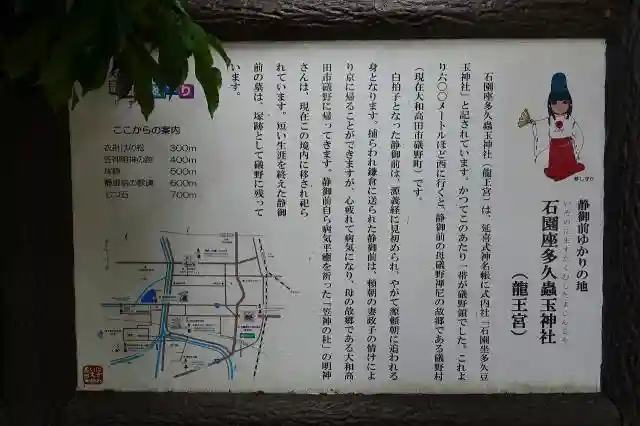 静御前ゆかりの地
いそのにますたくむしたまじんじゃ
石園座多久蟲玉神社
(龍王宮)
石園座多久蟲玉神社(龍王宮)は、延喜式神名帳に式内社「石園坐多久豆
玉神社」と記されています。かつてこのあたり一帯が磯野領でした。これよ
り六〇〇メートルほど西に行くと、静御前の母磯野禅尼の故郷である磯野村
(現在大和高田市磯野町)です。
白拍子となった静御前は、源義経に見初められ、やがて源頼朝に追われる
身となります。捕らわれ鎌倉に送られた静御前は、頼朝の妻政子の情けによ
り京に帰ることができますが、心疲れて病気になり、母の故郷である大和高
田市磯野に帰ってきます。静御前自ら病気平癒を祈った「笠神の杜」の明神
さんは、現在この境内に移され祀ら
れています。短い生涯を終えた静御
前の墓は、塚跡として磯野に残って
います。
ここからの案内
衣掛けの松 300m
笠神明神の跡 400m
塚跡 500m
静御前の歌碑 600m
七つ石 700m